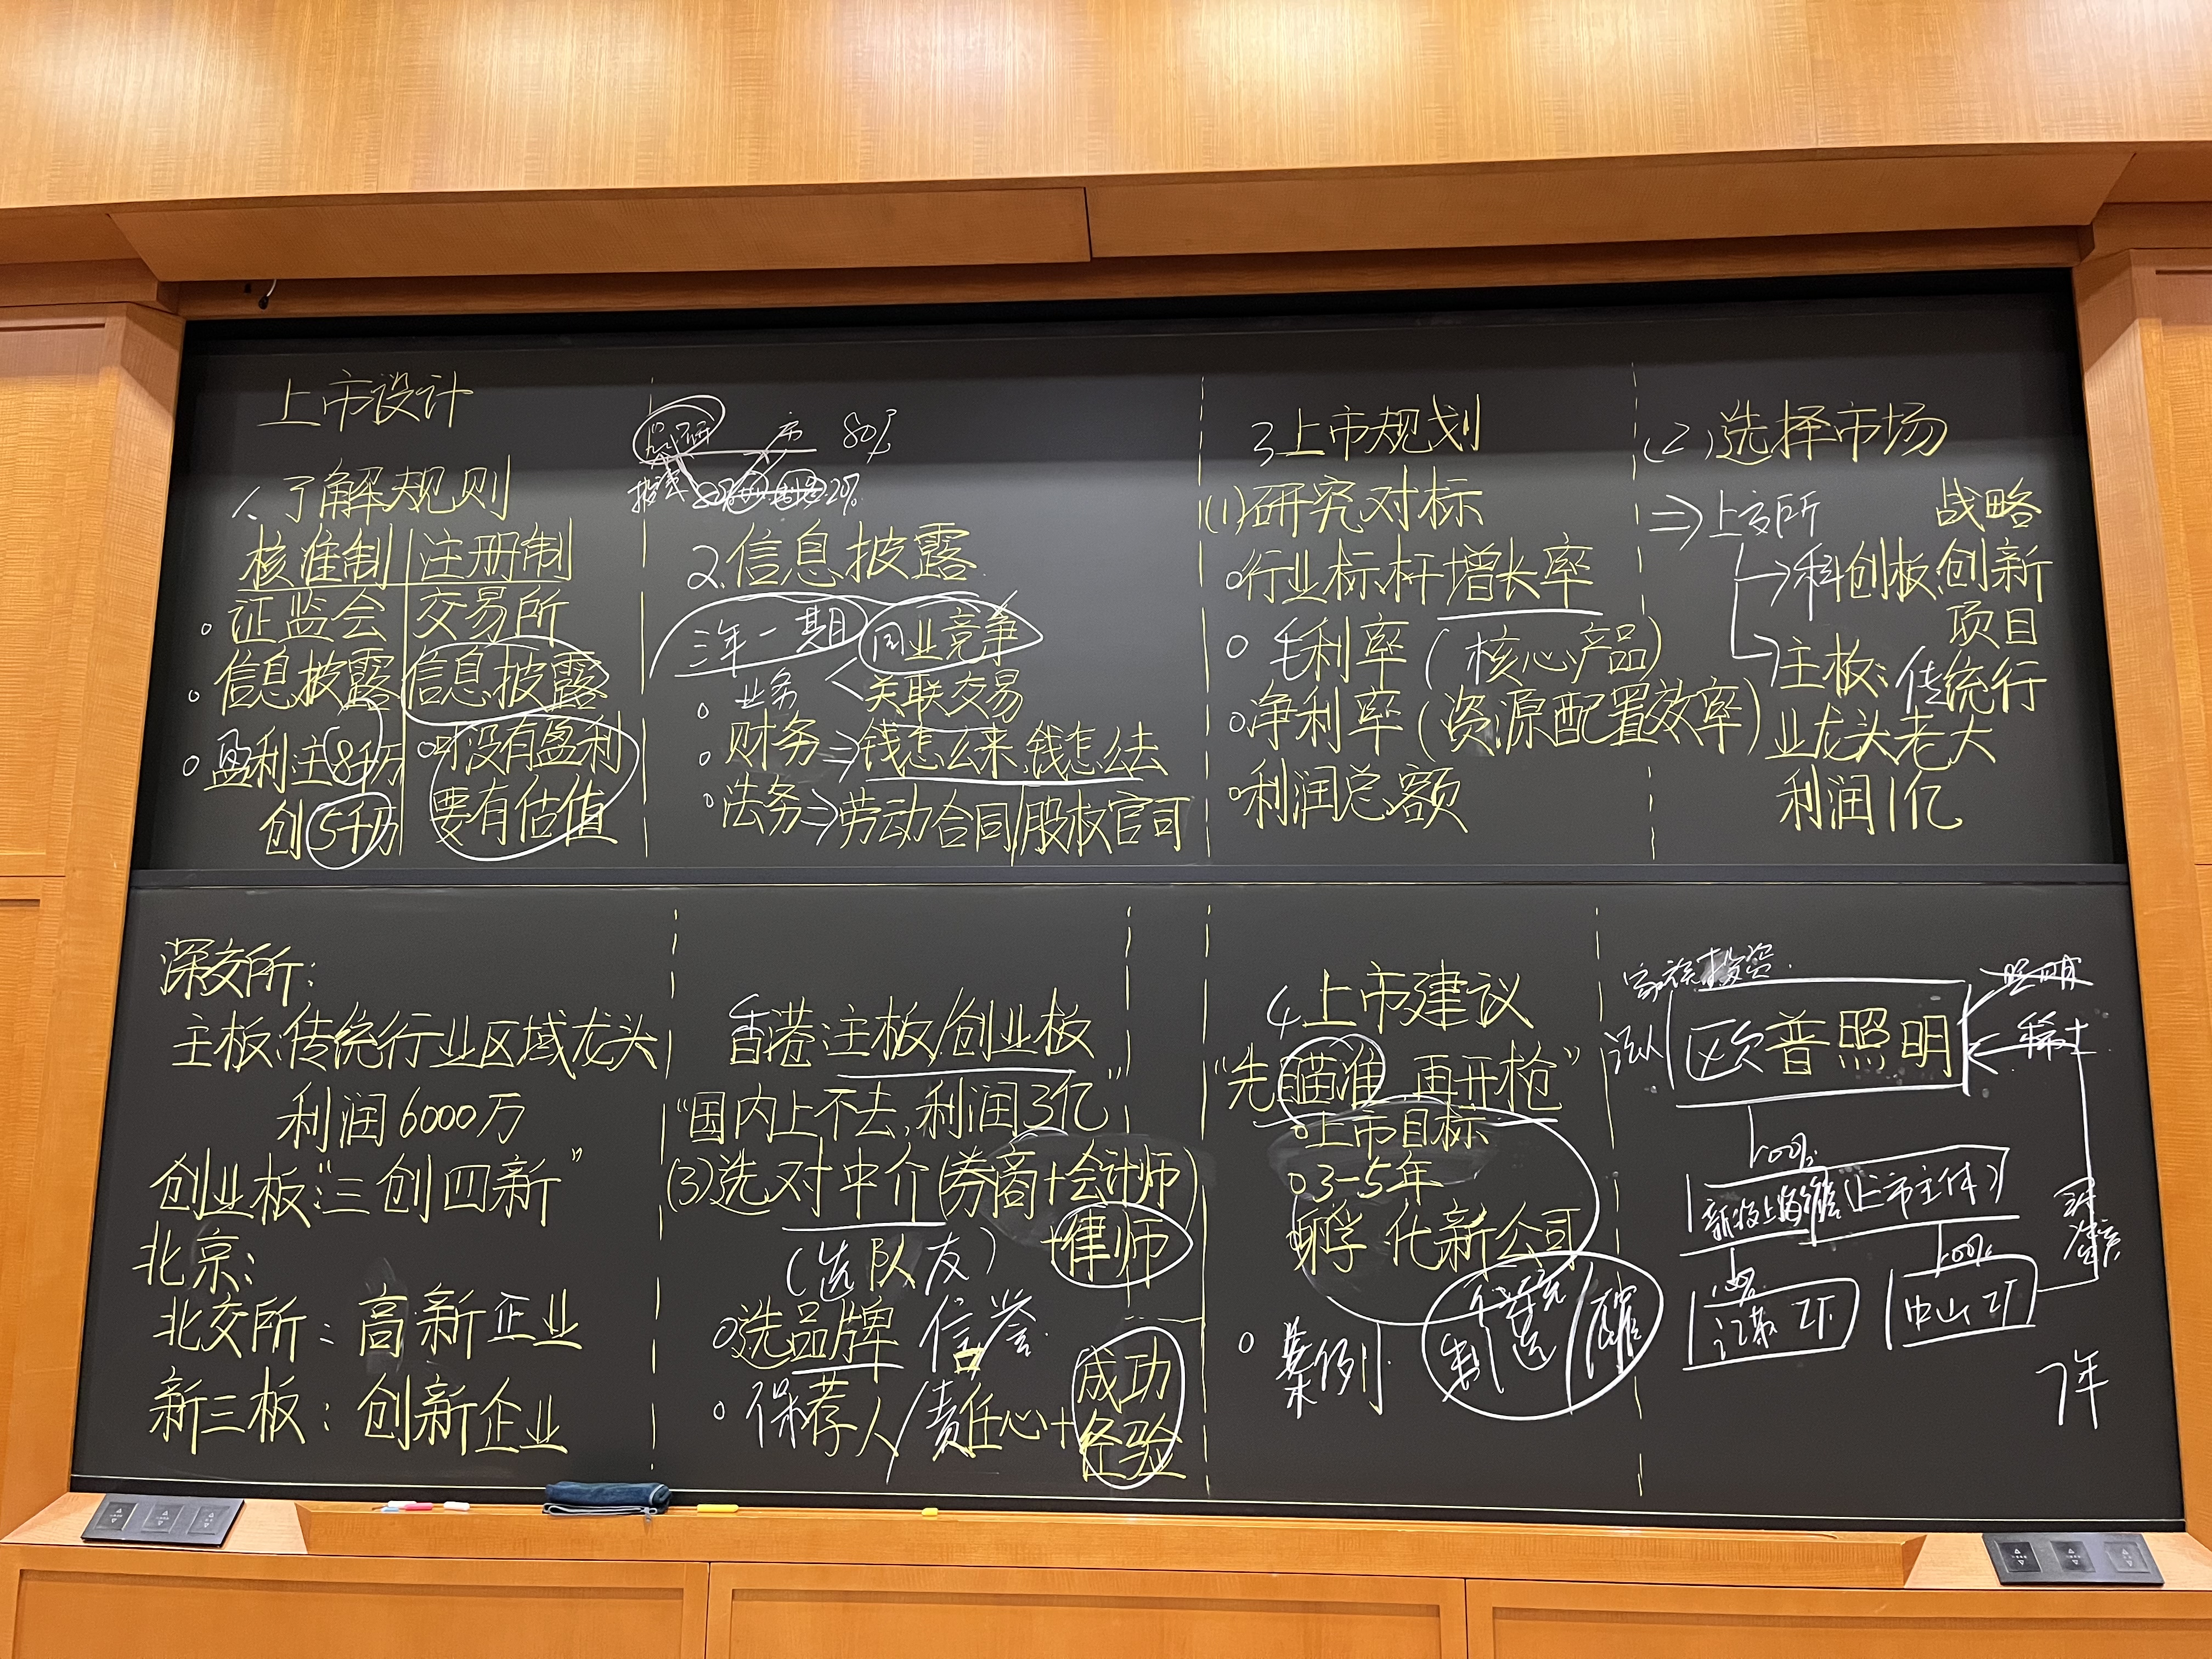 上市设计
1、了解规则
核准制 注册制
证监会 交易所
信息披露 信息披露
盈利主8千万 可没有盈利
创5千万 要有估值
80%
20%
2、信息披露
三年一期 同业竞争
业务 关联交易
财务⇒钱怎么来,钱怎么去
法务⇒劳动合同/股权官司
3 上市规划
(1)研究对标
行业标杆增长率
毛利率(核心产品)
净利率(资源配置效率)
利润总额
(2)选择市场
⇒上交所 战略
→科创板:创新
项目
→主板:传统行
业龙头老大
利润1亿
深交所:
主板:传统行业区域龙头
利润6000万
创业板:"三创四新"
北京:
北交所:高新企业
新三板:创新企业
香港:主板/创业板
"国内上不去,利润3亿"
(3)选对中介(券商+会计师
+律师
(选队友)
选品牌 信誉
保荐人/责任心+成功
经验
4 上市建议
"先瞄准 再开枪"
上市目标
3-5年
孵化新公司
案例
制造
家族投资
法人 欧普照明
照明
100%
(上市主体)
100%
中山工厂
7年